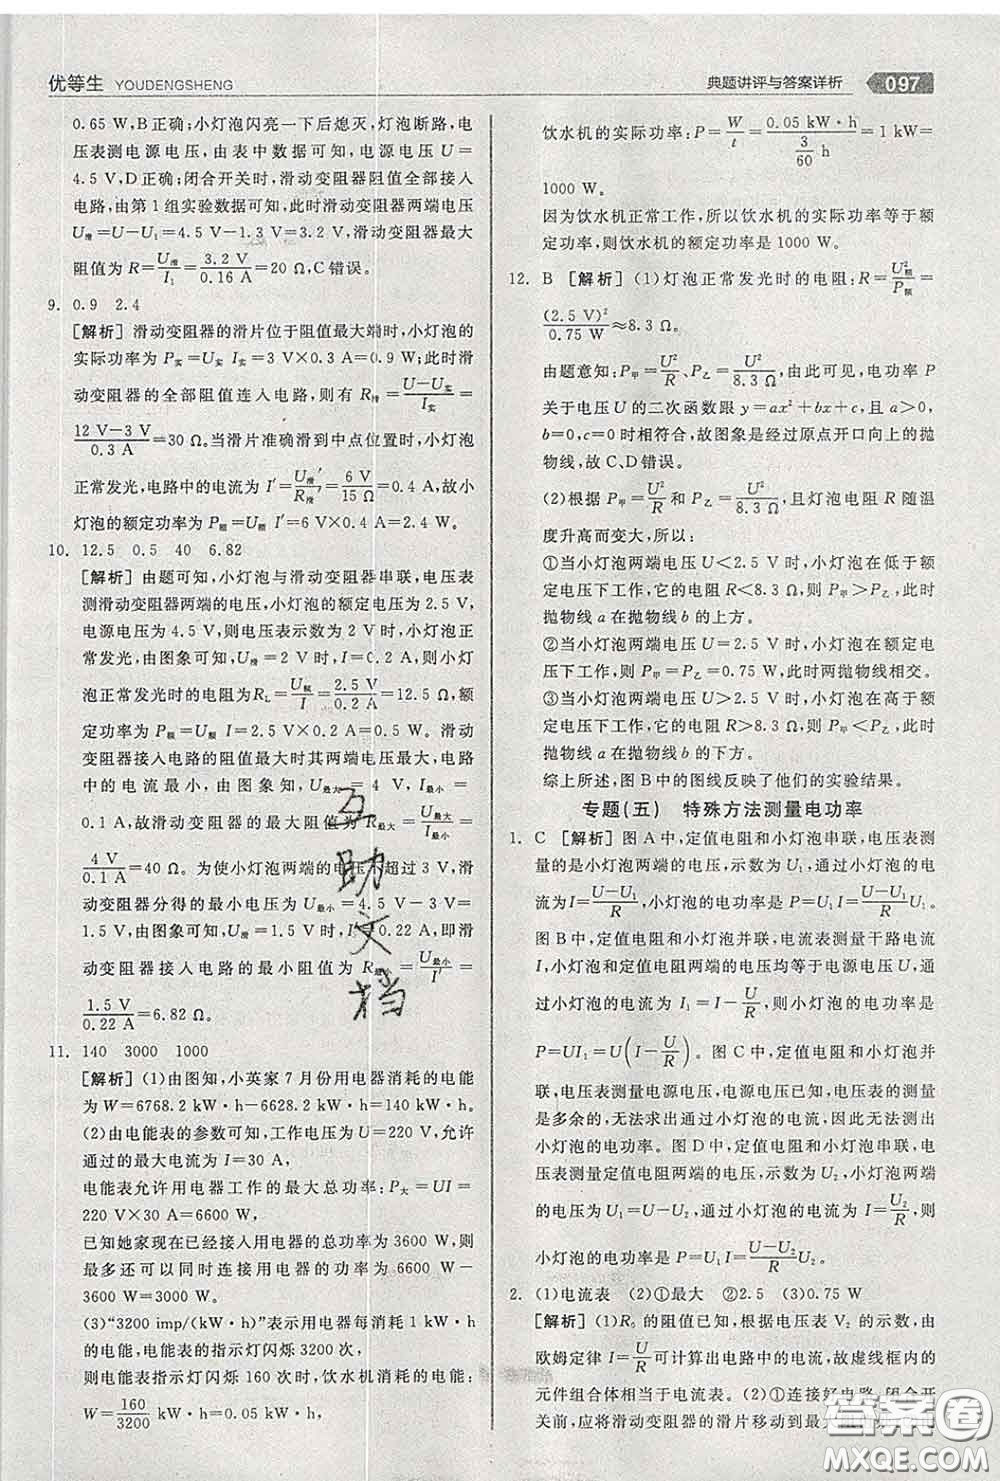 优等生 YOUDENGSHENG
典题讲评与答案详析 097
0.65 W,B正确;小灯泡闪亮一下后熄灭,灯泡断路,电
压表测电源电压,由表中数据可知,电源电压 U=
4.5 V,D正确;闭合开关时,滑动变阻器阻值全部接入
电路,由第 1 组实验数据可知,此时滑动变阻器两端电压
U滑=U-U₁=4.5 V-1.3 V=3.2 V,滑动变阻器最大
阻值为 R=U滑/I₁=3.2 V/0.16 A=20 Ω,C错误。
9. 0.9 2.4
[解析] 滑动变阻器的滑片位于阻值最大端时,小灯泡的
实际功率为 P实=U实 I实=3 V×0.3 A=0.9 W;此时滑
动变阻器的全部阻值连入电路,则有 R滑=(U-U实)/I实=
(12 V-3 V)/0.3 A=30 Ω。当滑片准确滑到中点位置时,小灯泡
正常发光,电路中的电流为 I′=U滑′/R滑′=6 V/15 Ω=0.4 A,故小
灯泡的额定功率为 P额=U额 I′=6 V×0.4 A=2.4 W。
10. 12.5 0.5 40 6.82
[解析] 由题可知,小灯泡与滑动变阻器串联,电压表
测滑动变阻器两端的电压,小灯泡的额定电压为 2.5 V,
电源电压为 4.5 V,则电压表示数为 2 V 时,小灯泡正
常发光,由图象可知,U滑=2 V 时,I=0.2 A,则小灯
泡正常发光时的电阻为 R_L=U额/I=2.5 V/0.2 A=12.5 Ω,额
定功率为 P额=U额 I=2.5 V×0.2 A=0.5 W。滑动
变阻器接入电路的阻值最大时其两端电压最大,电路
中的电流最小,由图象知,U最大=4 V,I最小=
0.1 A,故滑动变阻器的最大阻值为 R最大=U最大/I最小=
4 V/0.1 A=40 Ω。为使小灯泡两端的电压不超过 3 V,滑
动变阻器分得的最小电压为 U最小=4.5 V-3 V=
1.5 V,由图象可知,U滑=1.5 V 时,I=0.22 A,即滑
动变阻器接入电路的最小阻值为 R最小=U最小/I′=
1.5 V/0.22 A=6.82 Ω。
11. 140 3000 1000
[解析] (1)由图知,小英家 7 月份用电器消耗的电能
为 W=6768.2 kW·h-6628.2 kW·h=140 kW·h。
(2)由电能表的参数可知,工作电压为 U=220 V,允许
通过的最大电流为 I=30 A,
电能表允许用电器工作的最大总功率:P大=UI=
220 V×30 A=6600 W,
已知她家现在已经接入用电器的总功率为 3600 W,则
最多还可以同时连接用电器的功率为 6600 W-
3600 W=3000 W;
(3)“3200 imp/(kW·h)”表示用电器每消耗 1 kW·h
的电能,电能表的指示灯闪烁 3200 次,
则电能表指示灯闪烁 160 次时,饮水机消耗的电能:
W=160/3200 kW·h=0.05 kW·h,
饮水机的实际功率:P=W/t=0.05 kW·h/(3/60 h)=1 kW=
1000 W。
因为饮水机正常工作,所以饮水机的实际功率等于额
定功率,则饮水机的额定功率是 1000 W。
12. B [解析] (1)灯泡正常发光时的电阻:R=U²额/P额=
(2.5 V)²/0.75 W≈8.3 Ω。
由题意知:P甲=U²/R、P乙=U²/8.3 Ω,由此可见,电功率 P
关于电压 U 的二次函数跟 y=ax²+bx+c,且 a>0,
b=0,c=0 时相符合,故图象是经过原点开口向上的抛
物线,故 C、D 错误。
(2)根据 P甲=U²/R 和 P乙=U²/8.3 Ω,且灯泡电阻 R 随温
度升高而变大,所以:
①当小灯泡两端电压 U<2.5 V 时,小灯泡在低于额
定电压下工作,它的电阻 R<8.3 Ω,则 P甲>P乙,此时
抛物线 a 在抛物线 b 的上方。
②当小灯泡两端电压 U=2.5 V 时,小灯泡在额定电
压下工作,则 P甲=P乙=0.75 W,此时两抛物线相交。
③当小灯泡两端电压 U>2.5 V 时,小灯泡在高于额
定电压下工作,它的电阻 R>8.3 Ω,则 P甲<P乙,此时
抛物线 a 在抛物线 b 的下方。
综上所述,图 B 中的图线反映了他们的实验结果。
专题(五) 特殊方法测量电功率
1. C [解析] 图 A 中,定值电阻和小灯泡串联,电压表测
量的是小灯泡两端的电压,示数为 U₁,通过小灯泡的电
流为 I=(U-U₁)/R,小灯泡的电功率 P=U₁I=(U-U₁)/R U₁。
图 B 中,定值电阻和小灯泡并联,电流表测量干路电流
I,小灯泡和定值电阻两端的电压均等于电源电压 U,通
过小灯泡的电流为 I₁=I-U/R,小灯泡的电功率
P=UI₁=U(I-U/R)。图 C 中,定值电阻和小灯泡并
联,电压表测量电源电压,电源电压已知,电压表的测量
是多余的,无法求出通过小灯泡的电流,因此无法测出
小灯泡的电功率。图 D 中,定值电阻和小灯泡串联,电
压表测量定值电阻两端的电压,示数为 U₂,小灯泡两端
的电压为 U₁=U-U₂,通过小灯泡的电流 I=U₂/R,则
小灯泡的电功率为 P=U₁I=(U-U₂)/R U₂。
2. (1)电流表 (2)①最大 ②2.5 0.75 W
[解析] (1)R₀ 的阻值已知,根据电压表 V₂ 的示数,由
欧姆定律 I=U/R 可计算出电路中的电流,故虚线框内的
元件组合体相当于电流表。(2)①连接好电路,闭合开
关前,应将滑动变阻器的滑片移动到最大
互助文档
答案圈
MXQE.COM